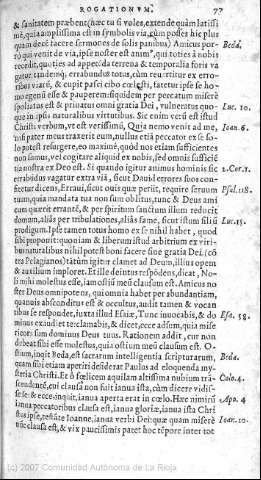 ROGATIONVM. 77
& sanitatem præbent (hæc tu si voles, extende quàm latissi
mè, quia amplissima est in symbolis vis, cùm possec hic plus
quàm decẽ facere sermones de solis panibus) Amicus por-
rò qui venit de via, ipse noster est animꝰ, qui toties à nobis Beda.
recedit, quoties ad appecẽda terrena & temporalia foris va
gatur. tandemq́; errabundus totus, cùm reuertitur ex erro-
ribus viarũ, & cupit pasci cibo cœlesti, factus ipse de ho-
mo egens esse & pauperem quidem per peccatum miserè
spoliatus est & priuatus omni gratia Dei, vulneratus quo- Luc. 10.
que in ipsis naturalibus virtutibus. Sic enim verũ est istud
Christi verbum, vt est verissimũ, Quia nemo venit ad me, Ioan. 6.
nisi pater meus traxerit eum, nullus etiã peccator ex se so-
lo potest resurgere, eo maximè, quòd nos etiam sufficientes
non sumus, vel cogitare aliquid ex nobis, sed omnis sufficiẽ
tia nostra ex Deo est. Si quando igitur animus hominis sic 2. Cor. 3.
errabũdus vagatur extra viã, sicut Dauid errores suos con-
fitetur dicens, Erraui, sicut ouis quæ perijt, require seruum Psal. 118.
tuum, quia mandata tua non sum oblitus, tunc & Deus ami
cum quærit errantẽ, & per spiritum sanctum illum reducit
domum, aliàs per tribulationes, aliàs fame, sicut istum filiũ Luc. 15.
prodigum. Ipse tamen totus homo ex se nihil habet, quod
sibi proponit: quoniam & liberum istud arbitrium ex viri-
bus naturalibus nihil potest boni facere sine gratia Dei. (cõ
tra Pelagianos) tatùm igitur clamet ad Deum, illius opem
& auxilium imploret. Et ille deintus respõdens, dicat, No-
li mihi molestus esse, iam ostiũ meũ clausum est. Amicus no
ster Deus omnipotens, qui omnia habet per abundantiam,
quanuis absconditus est & occultus, audit tamen & vocan
tibus se respondet, iuxta illud Esaiæ, Tunc inuocabis, & do Esa. 58.
minus exaudiet te: clamabis, & dicet, ecce adsum, quia mise
ricors sum dominus Deus tuus. Rationem addit, cur non
debeat sibi esse molestus, quia ostium meũ clausum est. O-
stium, inquit Beda, est sacrarum intelligentia scripturarum, Beda.
quam sibi etiam aperiri desiderat Paulus ad eloquenda my-
steria Christi. Et ô fœlicem aquilam altissima nubium trã- Colo. 4.
scendentẽ, cui clausa non fuit ianua ista, cùm dicere vidis-
se se: & ecce, inquit, ianua aperta erat in cœlo. Hæc nimirũ Apo. 4
ianua peccatoribus clausa est, ianua gloriæ, ianua ista Chri
stus ipse, teste Ioanne, ianua verbi Dei: quæ quàm miserè Ioan. 10.
nũc clausa est, & vix paucissimis patet hoc tẽpore inter tot
(c) 2007 Comunidad Autónoma de La Rioja